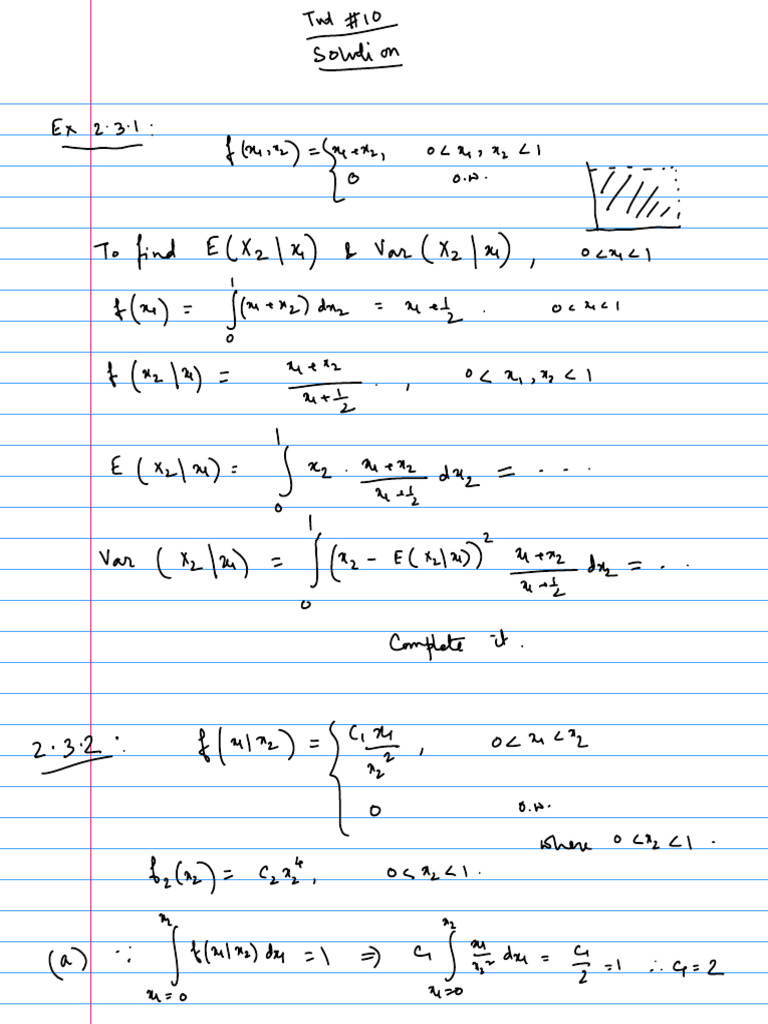 Tut #10
Solution
Ex 2.3.1:
f(x₁,x₂) = { x₁+x₂, 0<x₁, x₂<1
0 o.w.
To find E(X₂|x₁) & Var(X₂|x₁), 0<x₁<1
f(x₁) = ∫₀¹ (x₁+x₂) dx₂ = x₁+1/2. 0<x₁<1
f(x₂|x₁) = (x₁+x₂)/(x₁+1/2)., 0<x₁,x₂<1
E(X₂|x₁) = ∫₀¹ x₂ · (x₁+x₂)/(x₁+1/2) dx₂ = ...
Var(X₂|x₁) = ∫₀¹ (x₂ - E(X₂|x₁))² (x₁+x₂)/(x₁+1/2) dx₂ = ...
Complete it.
2.3.2: f(x₁|x₂) = { c₁x₁/x₂², 0<x₁<x₂
0 o.w.
where 0<x₂<1.
f₂(x₂) = c₂x₂⁴, 0<x₂<1.
(a) ∵ ∫_{x₁=0}^{x₂} f(x₁|x₂) dx₁ = 1 ⇒ c₁ ∫_{x₁=0}^{x₂} x₁/x₂² dx₁ = c₁/2 = 1 ∴ c₁ = 2